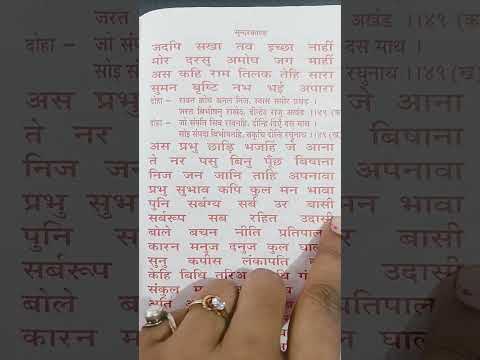 सुन्दरकाण्ड
जदपि सखा तव इच्छा नाहीं
मोर दरसु अमोघ जग माहीं
अस कहि राम तिलक तेहि सारा
सुमन बृष्टि नभ भई अपारा
दोहा – रावन क्रोध अनल निज, स्वास समीर प्रचंड ।
जरत बिभीषनु राखेउ, दीन्हेउ राजु अखंड ।।४९ (क
दोहा – जो संपति सिव रावनहि, दीन्हि दिएँ दस माथ ।
सोइ संपदा बिभीषनहि, सकुचि दीन्हि रघुनाथ ।।४९ (ख)
अस प्रभु छाड़ि भजहिं जे आना
ते नर पसु बिनु पूँछ बिषाना
निज जन जानि ताहि अपनावा
प्रभु सुभाव कपि कुल मन भावा
पुनि सर्बग्य सर्ब उर बासी
सर्बरूप सब रहित उदासी
बोले बचन नीति प्रतिपाल
कारन मनुज दनुज कुल घाल
सुनु कपीस लंकापति
केहि बिधि तरिअ
संकुल